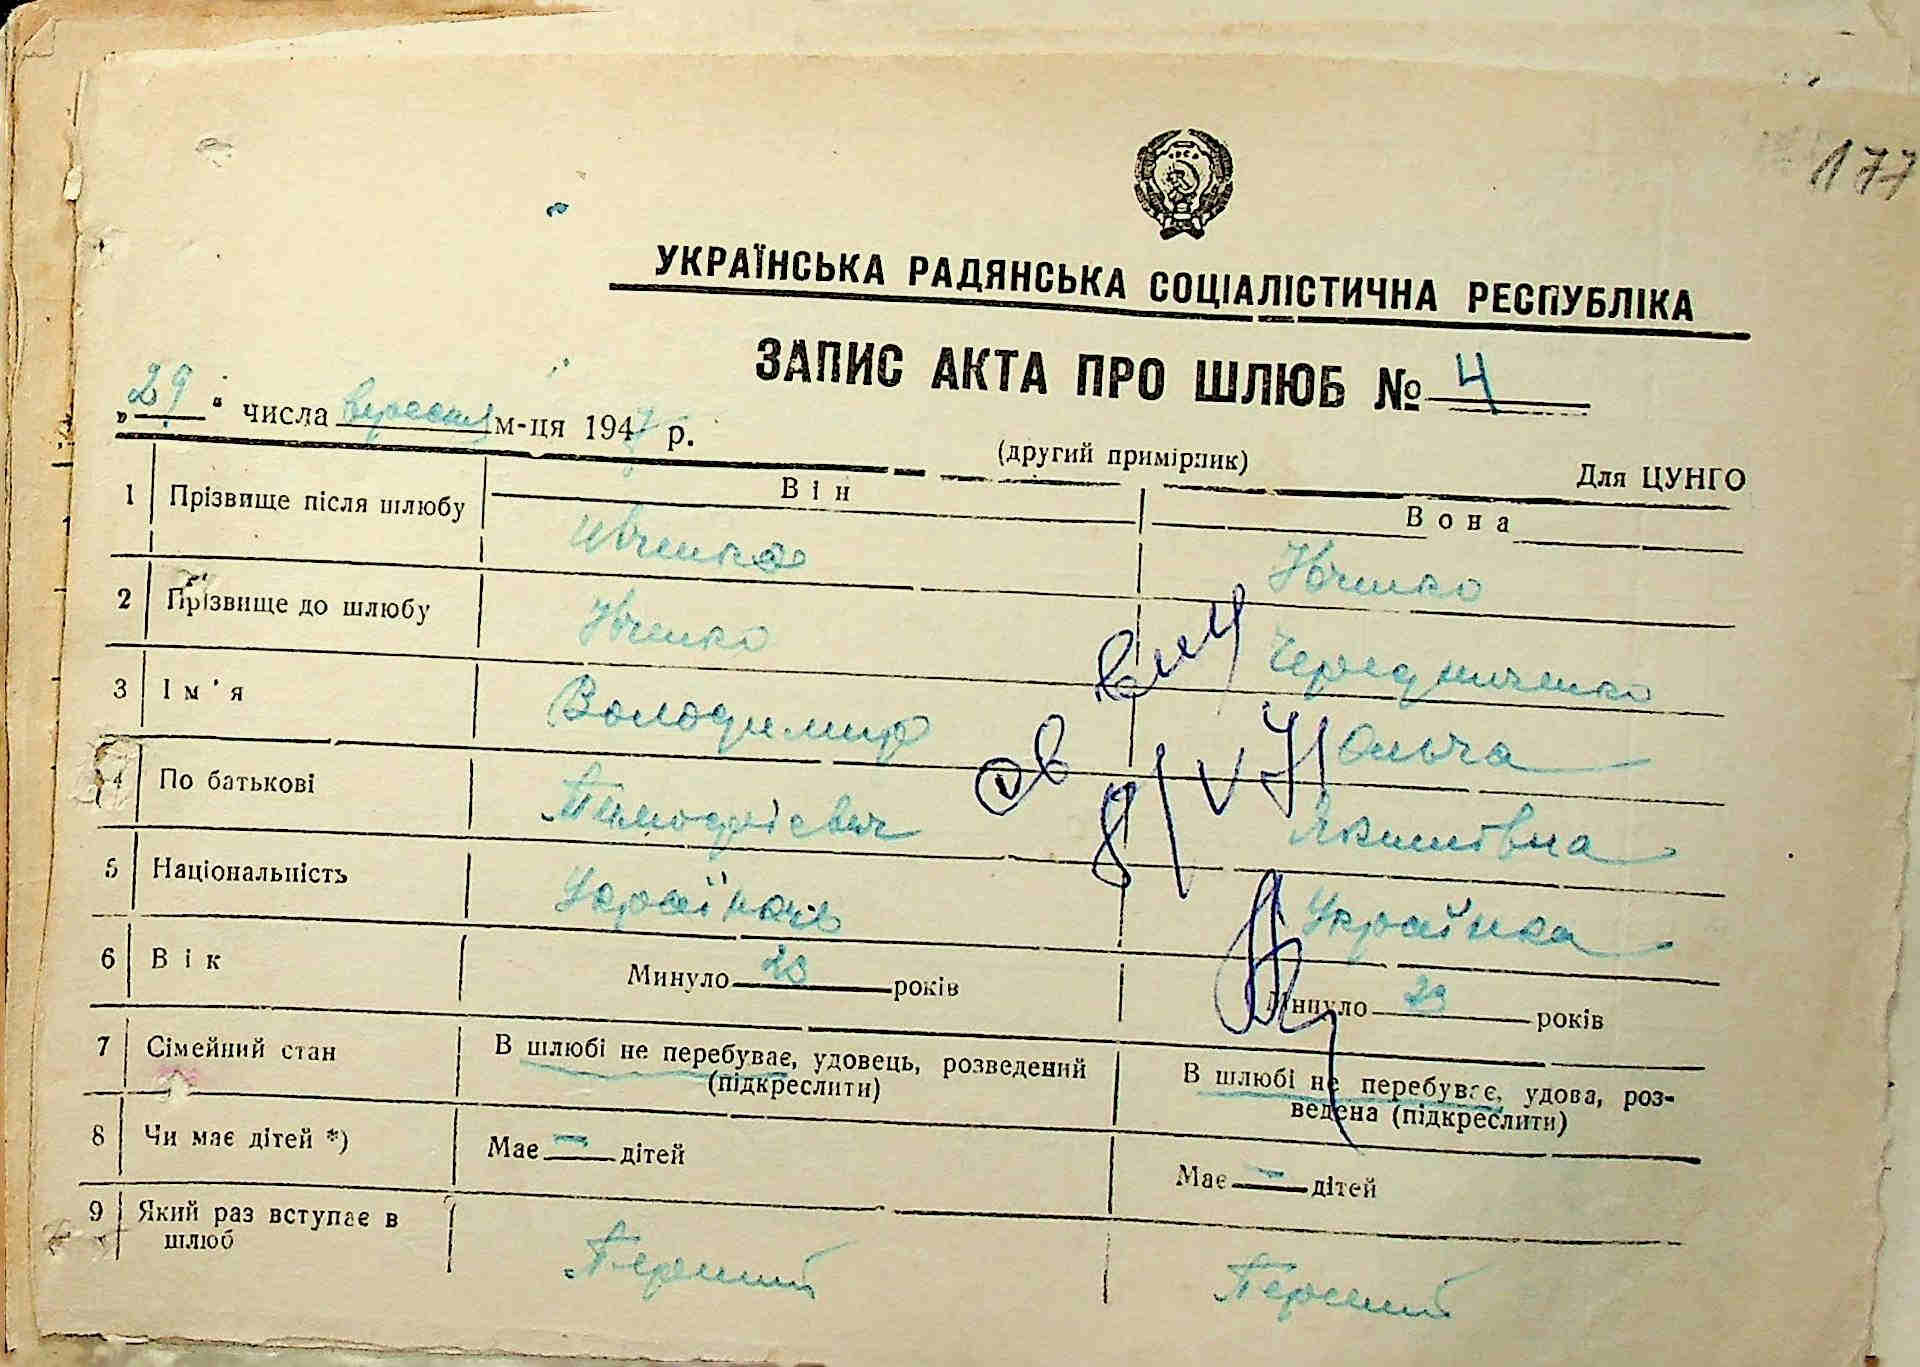 177
УКРАЇНСЬКА РАДЯНСЬКА СОЦІАЛІСТИЧНА РЕСПУБЛІКА
ЗАПИС АКТА ПРО ШЛЮБ № 4
„29“ числа вересня м-ця 1947 р.
(другий примірник)
Для ЦУНГО
Він Вона
1 Прізвище після шлюбу Івченко Івченко
2 Прізвище до шлюбу Івченко Чередниченко
3 Ім'я Володимир Ольга
4 По батькові Тимофієвич Якимівна
5 Національність Українець Українка
6 Вік Минуло 23 років Минуло 23 років
7 Сімейний стан В шлюбі не перебуває, удовець, розведений (підкреслити) В шлюбі не перебуває, удова, роз-
ведена (підкреслити)
8 Чи має дітей *) Має — дітей Має — дітей
9 Який раз вступає в
шлюб Перший Перший